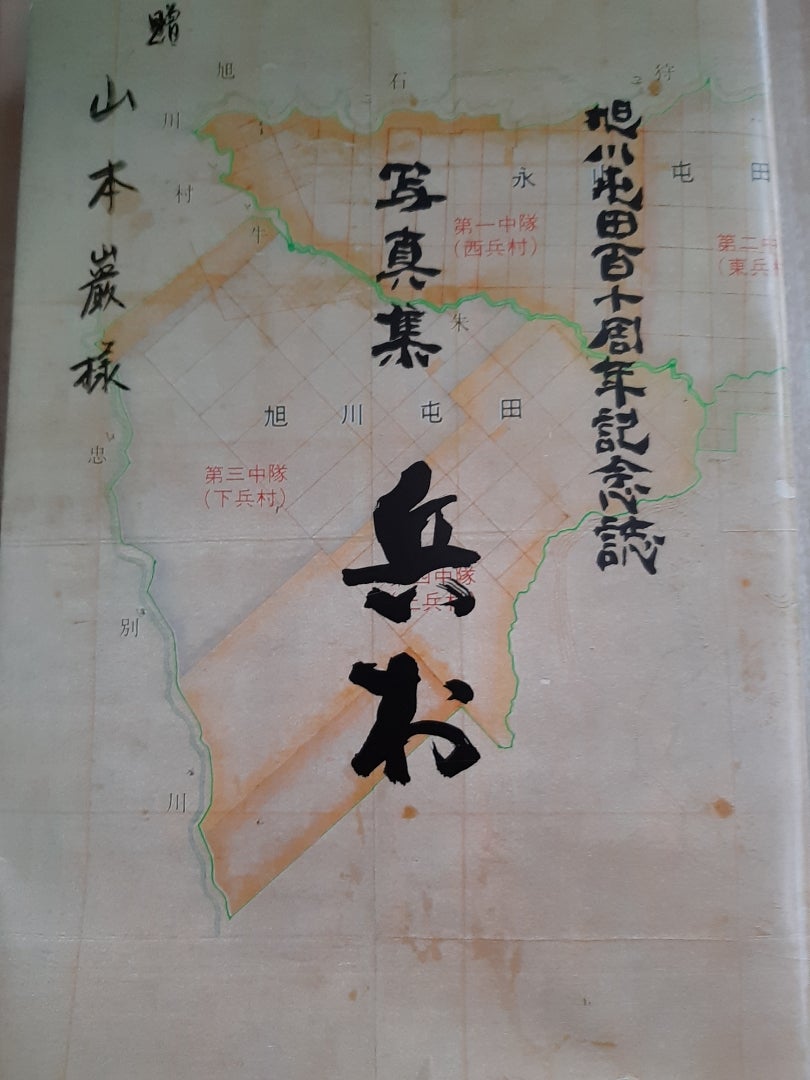 旭川屯田百十周年記念誌
写真集
兵村
贈
山本巖様
石狩
永山屯田
第一中隊
(西兵村)
第二中
(東兵村
旭川村
牛朱別川
旭川屯田
第三中隊
(下兵村)
中隊
兵村
忠別川